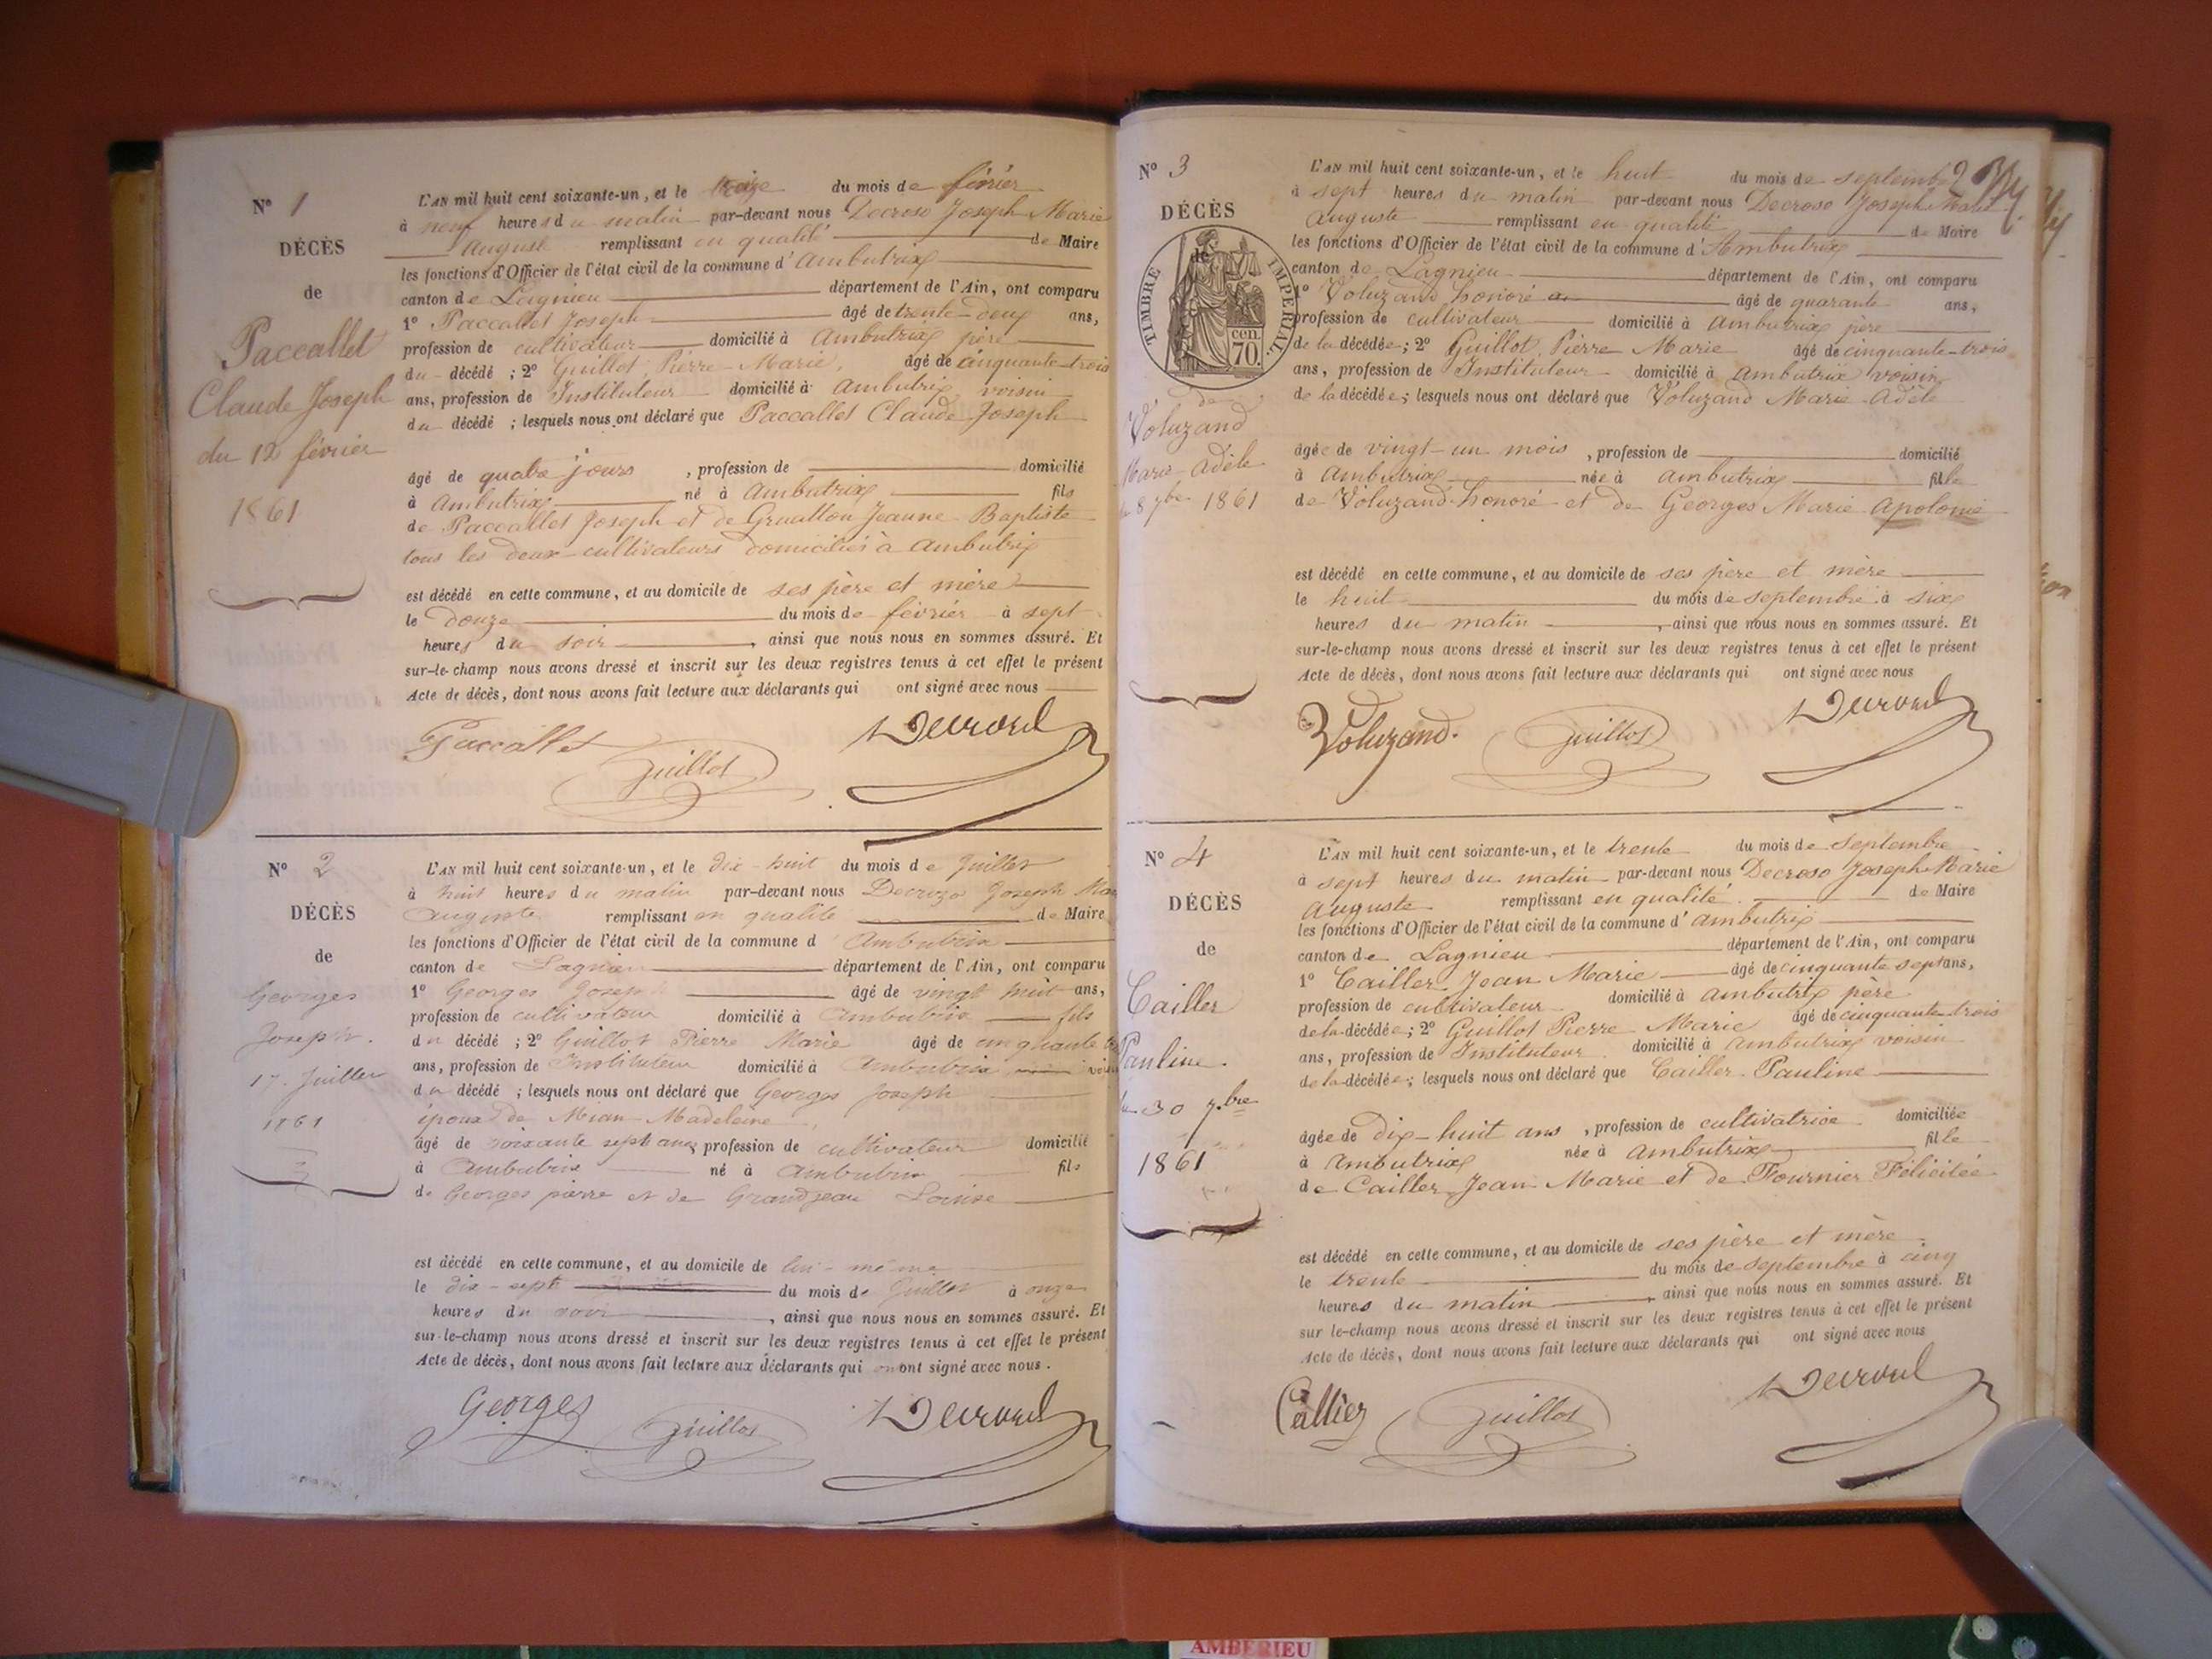 N° 1
DÉCÈS
de
Paccallet
Claude Joseph
du 12 février
1861
L'AN mil huit cent soixante-un, et le treize du mois de février
à neuf heures du matin par-devant nous Decroso Joseph Marie
Auguste remplissant en qualité de Maire
les fonctions d'Officier de l'état civil de la commune d'Ambutrix
canton de Lagnieu département de l'Ain, ont comparu
1° Paccallet Joseph âgé de trente-deux ans,
profession de cultivateur domicilié à Ambutrix père
du décédé ; 2° Guillot Pierre Marie, âgé de cinquante-trois
ans, profession de Instituteur domicilié à Ambutrix voisin
du décédé ; lesquels nous ont déclaré que Paccallet Claude Joseph
âgé de quatre jours , profession de domicilié
à Ambutrix né à Ambutrix fils
de Paccallet Joseph et de Gruallon Jeanne Baptiste
tous les deux cultivateurs domiciliés à Ambutrix
est décédé en cette commune, et au domicile de ses père et mère
le douze du mois de février à sept
heures du soir , ainsi que nous nous en sommes assuré. Et
sur-le-champ nous avons dressé et inscrit sur les deux registres tenus à cet effet le présent
Acte de décès, dont nous avons fait lecture aux déclarants qui ont signé avec nous
Paccallet Guillot Decroso
N° 2
DÉCÈS
de
Georges
Joseph.
17. Juillet
1861
L'AN mil huit cent soixante-un, et le dix-huit du mois de Juillet
à huit heures du matin par-devant nous Decrozo Joseph Mar
Auguste remplissant en qualité de Maire
les fonctions d'Officier de l'état civil de la commune d'Ambutrix
canton de Lagnieu département de l'Ain, ont comparu
1° Georges Joseph âgé de vingt huit ans,
profession de cultivateur domicilié à Ambutrix fils
du décédé ; 2° Guillot Pierre Marie âgé de cinquante
ans, profession de Instituteur domicilié à Ambutrix
du décédé ; lesquels nous ont déclaré que Georges Joseph
époux de Mian Madeleine,
âgé de soixante sept ans, profession de cultivateur domicilié
à Ambutrix né à Ambutrix fils
de Georges pierre et de Grandjean Louise
est décédé en cette commune, et au domicile de lui-même
le dix-sept du mois de Juillet à onze
heures du soir , ainsi que nous nous en sommes assuré. Et
sur-le-champ nous avons dressé et inscrit sur les deux registres tenus à cet effet le présent
Acte de décès, dont nous avons fait lecture aux déclarants qui ont signé avec nous.
Georges Guillot Decroso
N° 3
DÉCÈS
de
TIMBRE IMPERIAL.
70. cen.
de
Voluzand
Marie-Adèle
8 7bre 1861
L'AN mil huit cent soixante-un, et le huit du mois de septembre
à sept heures du matin par-devant nous Decroso Joseph Marie
Auguste remplissant en qualité de Maire
les fonctions d'Officier de l'état civil de la commune d'Ambutrix
canton de Lagnieu département de l'Ain, ont comparu
1° Voluzand honoré âgé de quarante ans,
profession de cultivateur domicilié à Ambutrix père
de la décédée ; 2° Guillot Pierre Marie âgé de cinquante-trois
ans, profession de Instituteur domicilié à Ambutrix voisin
de la décédée ; lesquels nous ont déclaré que Voluzand Marie-Adèle
âgée de vingt-un mois , profession de domicilié
à Ambutrix née à Ambutrix fille
de Voluzand honoré et de Georges Marie Apolonie
est décédé en cette commune, et au domicile de ses père et mère
le huit du mois de septembre à six
heures du matin , ainsi que nous nous en sommes assuré. Et
sur-le-champ nous avons dressé et inscrit sur les deux registres tenus à cet effet le présent
Acte de décès, dont nous avons fait lecture aux déclarants qui ont signé avec nous
Voluzand. Guillot Decroso
N° 4
DÉCÈS
de
Cailler
Pauline.
30 7bre
1861
L'AN mil huit cent soixante-un, et le trente du mois de septembre
à sept heures du matin par-devant nous Decroso Joseph Marie
Auguste remplissant en qualité de Maire
les fonctions d'Officier de l'état civil de la commune d'Ambutrix
canton de Lagnieu département de l'Ain, ont comparu
1° Cailler Jean Marie âgé de cinquante sept ans,
profession de cultivateur domicilié à Ambutrix père
de la décédée ; 2° Guillot Pierre Marie âgé de cinquante-trois
ans, profession de Instituteur domicilié à Ambutrix voisin
de la décédée ; lesquels nous ont déclaré que Cailler Pauline
âgée de dix-huit ans , profession de cultivatrice domiciliée
à Ambutrix née à Ambutrix fille
de Cailler Jean Marie et de Fournier Félicitée
est décédé en cette commune, et au domicile de ses père et mère
le trente du mois de septembre à cinq
heures du matin , ainsi que nous nous en sommes assuré. Et
sur le-champ nous avons dressé et inscrit sur les deux registres tenus à cet effet le présent
Acte de décès, dont nous avons fait lecture aux déclarants qui ont signé avec nous
Cailler Guillot Decroso
AMBERIEU